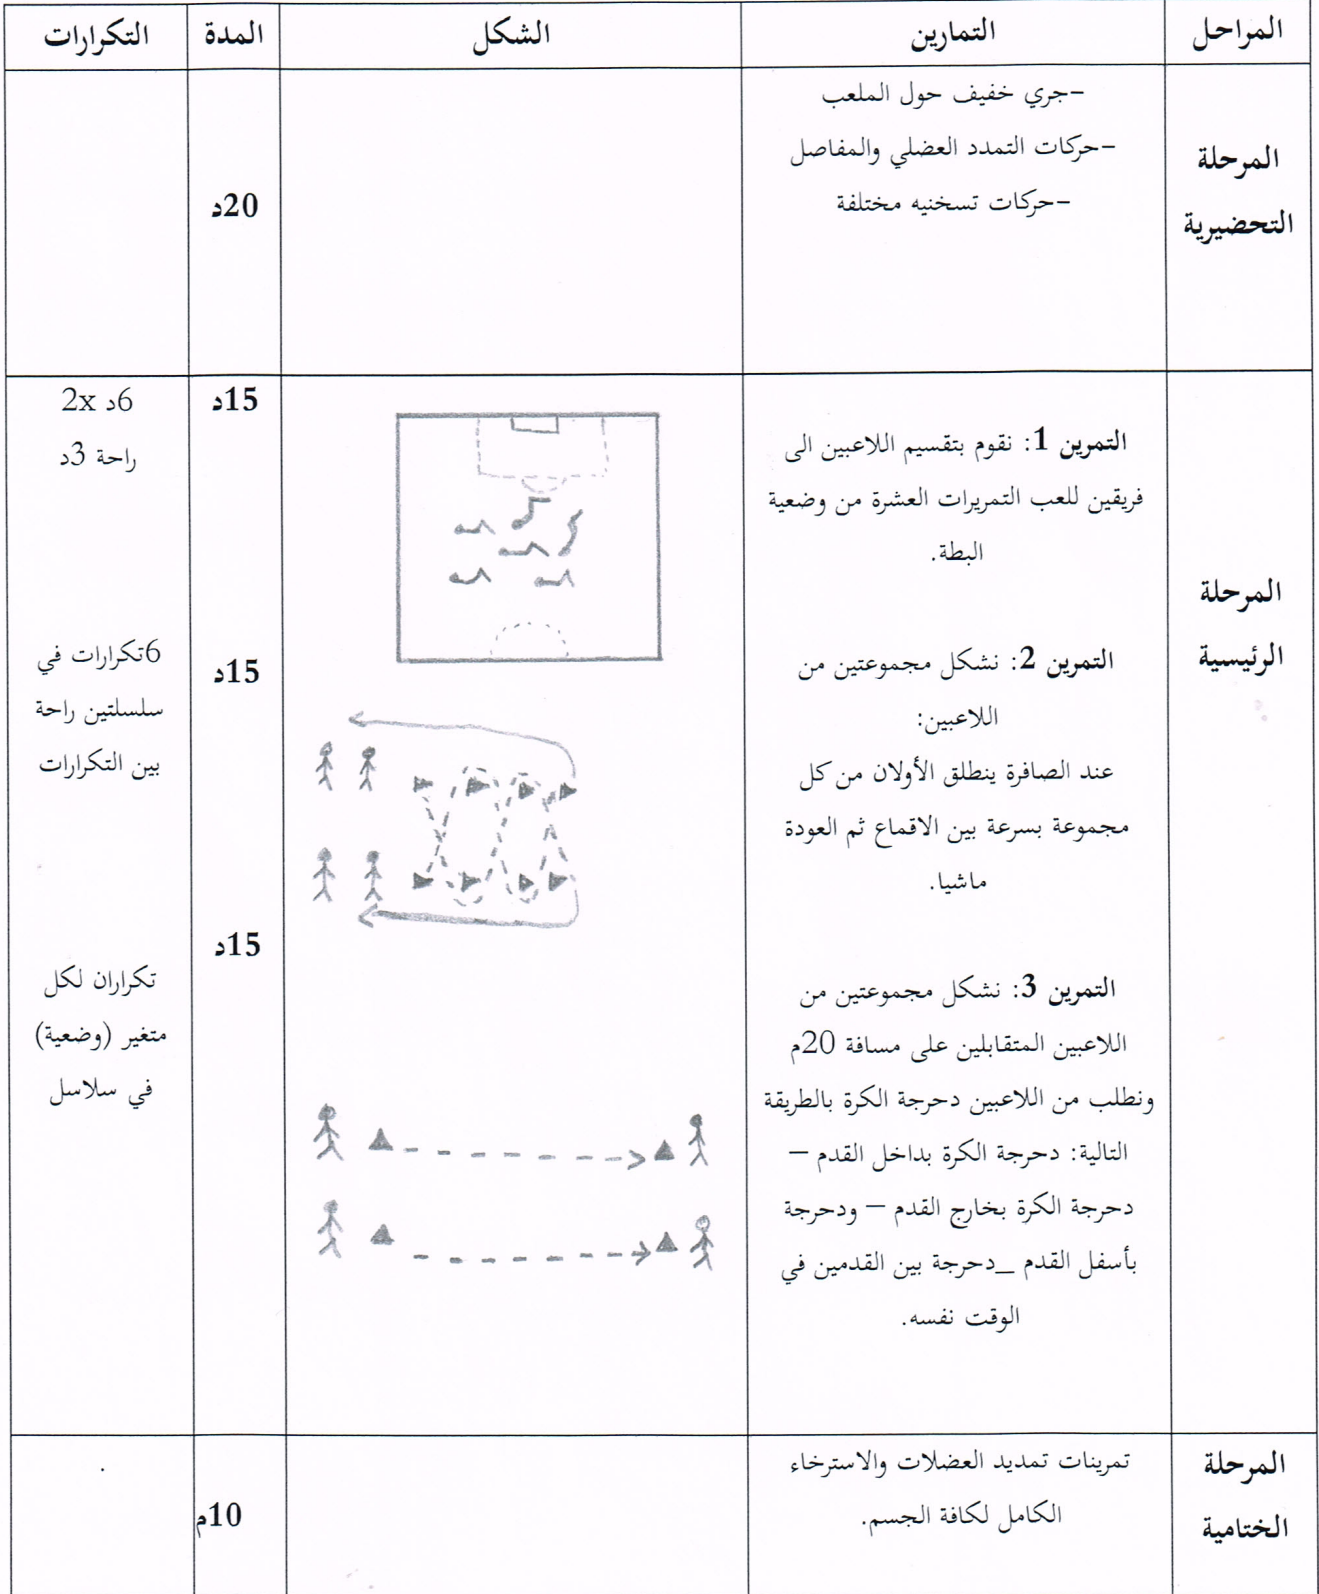 المراحل
التمارين
الشكل
المدة
التكرارات
المرحلة
التحضيرية
-جري خفيف حول الملعب
-حركات التمدد العضلي والمفاصل
-حركات تسخنيه مختلفة
20د
المرحلة
الرئيسية
التمرين 1: نقوم بتقسيم اللاعبين الى
فريقين للعب التمريرات العشرة من وضعية
البطة.
15د
6د 2x
راحة 3د
التمرين 2: نشكل مجموعتين من
اللاعبين:
عند الصافرة ينطلق الأولان من كل
مجموعة بسرعة بين الاقماع ثم العودة
ماشيا.
15د
6تكرارات في
سلسلتين راحة
بين التكرارات
التمرين 3: نشكل مجموعتين من
اللاعبين المتقابلين على مسافة 20م
ونطلب من اللاعبين دحرجة الكرة بالطريقة
التالية: دحرجة الكرة بداخل القدم –
دحرجة الكرة بخارج القدم – ودحرجة
بأسفل القدم _دحرجة بين القدمين في
الوقت نفسه.
15د
تكراران لكل
متغير (وضعية)
في سلاسل
المرحلة
الختامية
تمرينات تمديد العضلات والاسترخاء
الكامل لكافة الجسم.
10م
.